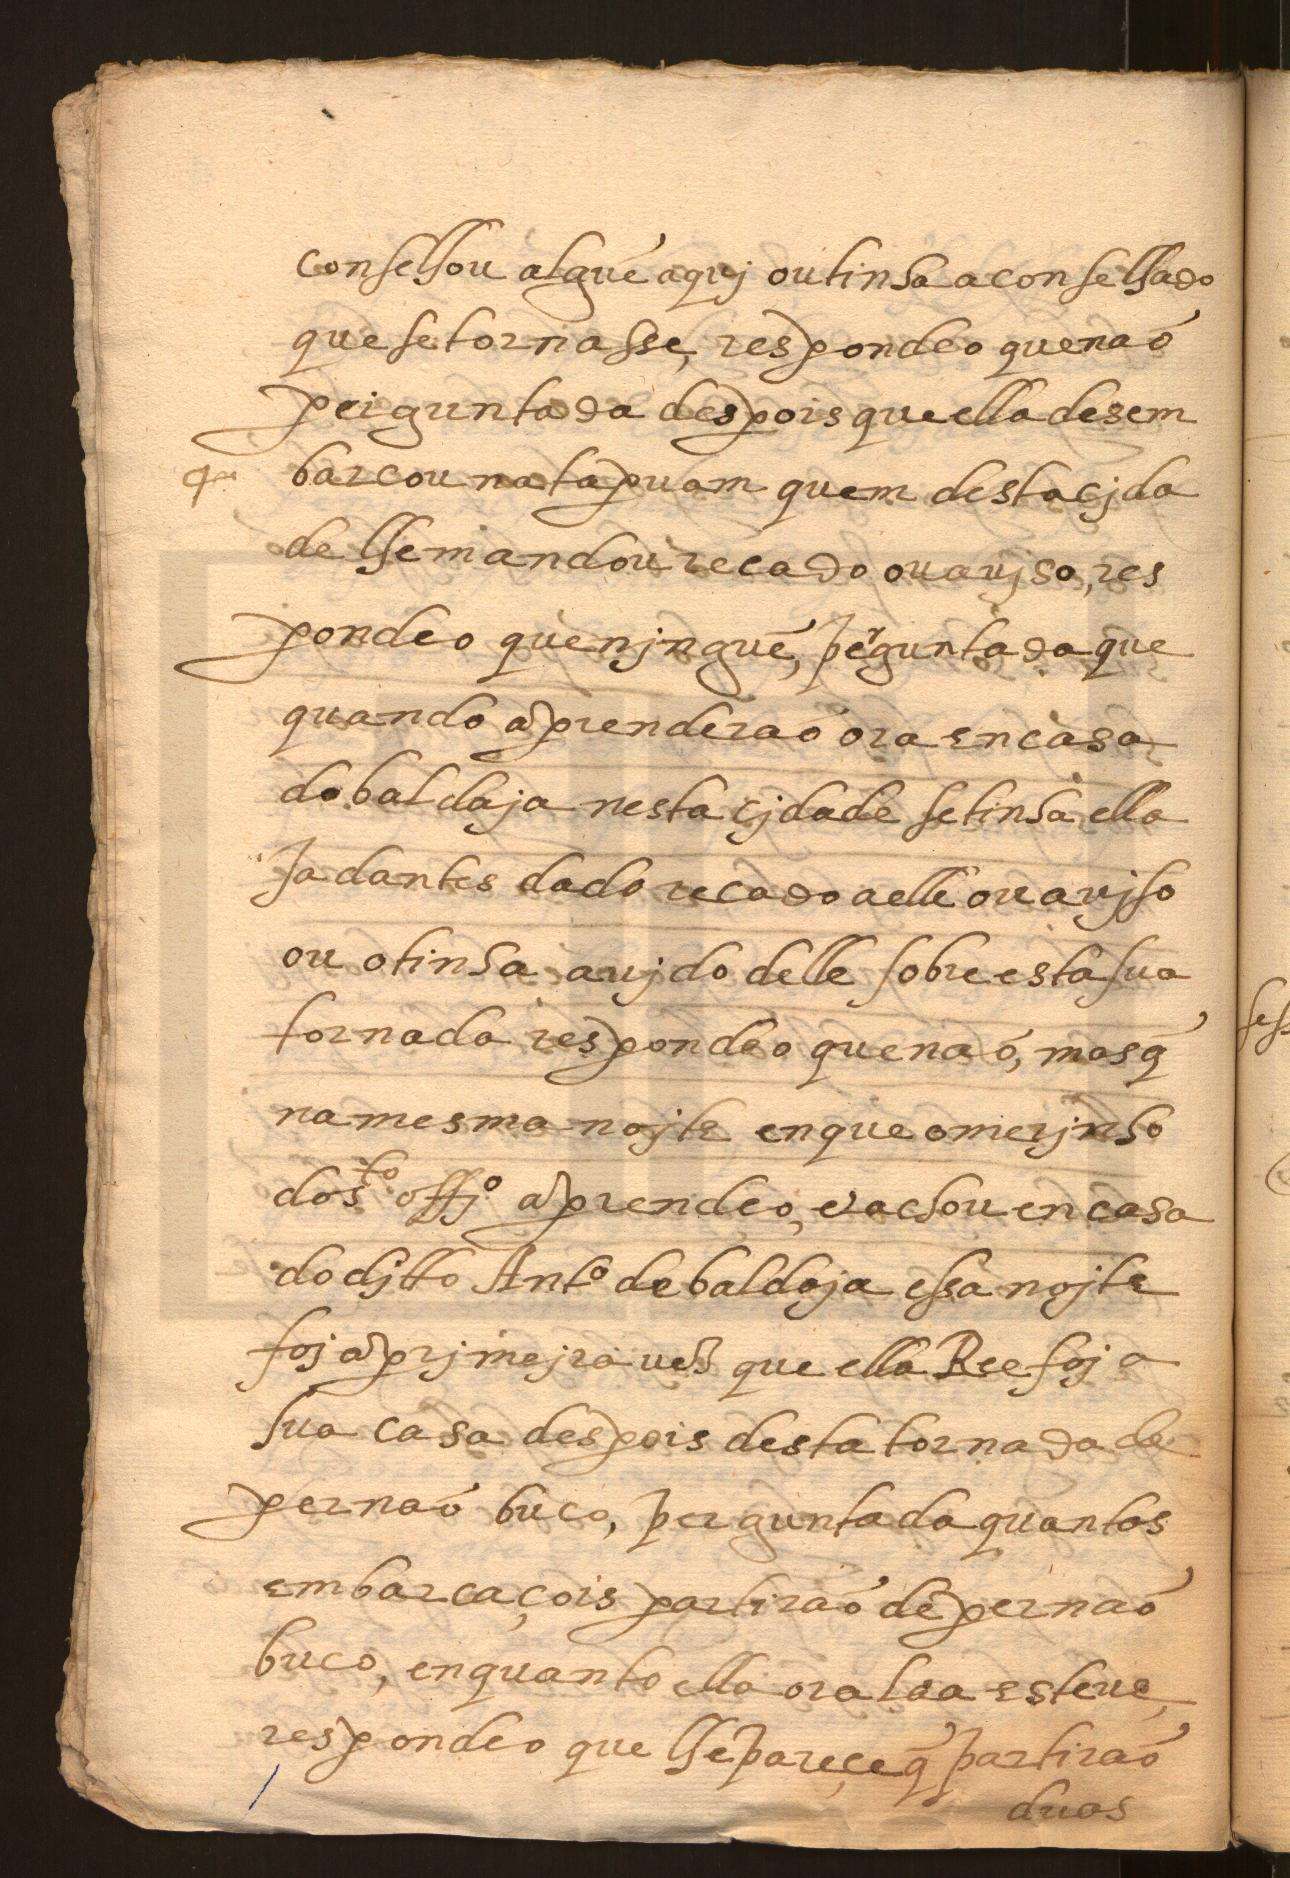 conselhou alguẽ aquj ou tinha aconselhado
que se tornasse, respondeo que naõ
perguntada despois que ella desem
barcou na tapuam quem desta cjda
de lhe mandou recado ou avjso, res
pondeo que njnguẽ, perguntada que
quando a prenderaõ ora en casa
do baldaja nesta cjdade se tinha ella
Ja dantes dado recado a elle ou avjso
ou o tinha avjdo delle sobre esta sua
tornada respondeo que naõ, mas q̃
na mesma nojte en que o merjnho
do s.to offj.o a prendeo, e achou en casa
do djtto Ant.o de baldaja essa nojte
foj a prjmejra ves que ella Ree foj a
sua casa despois desta tornada de
pernaõ buco, perguntada quantas
embarcaçois partiraõ de pernaõ
buco, enquanto ella ora laa esteve,
respondeo que lhe pareçe q̃ partiraõ
duas